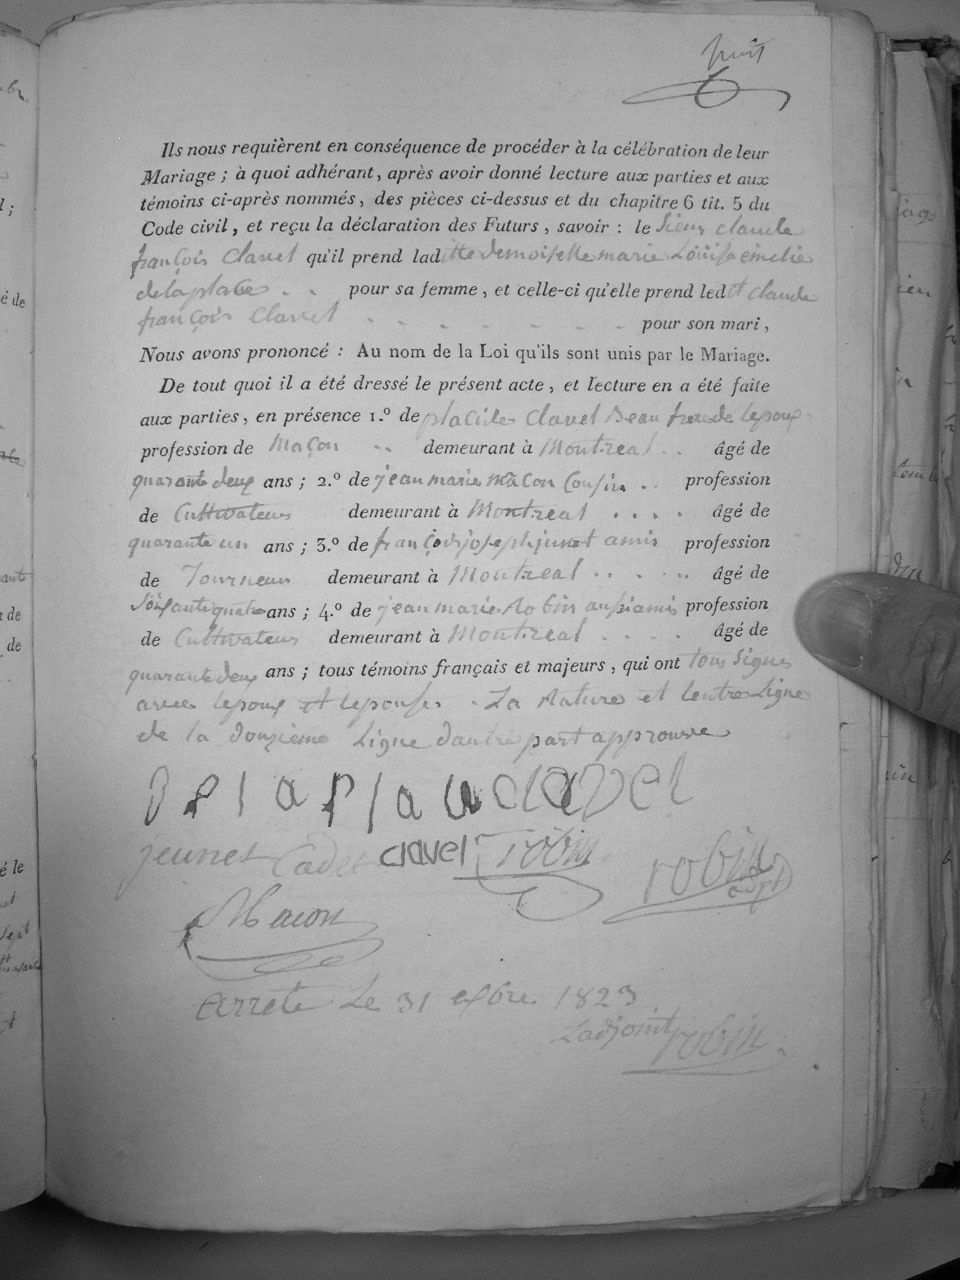 huit
Ils nous requièrent en conséquence de procéder à la célébration de leur
Mariage ; à quoi adhérant, après avoir donné lecture aux parties et aux
témoins ci-après nommés, des pièces ci-dessus et du chapitre 6 tit. 5 du
Code civil, et reçu la déclaration des Futurs, savoir : le Sieur claude
françois Clavel qu'il prend laditte demoiselle marie Loüisa emelie
delaplace . . pour sa femme, et celle-ci qu'elle prend ledt claude
françois Clavel . . . . . . . pour son mari,
Nous avons prononcé : Au nom de la Loi qu'ils sont unis par le Mariage.
De tout quoi il a été dressé le présent acte, et lecture en a été faite
aux parties, en présence 1.º de placide Clavel Beau frere de lepoux
profession de Maçon .. demeurant à Montreal .. âgé de
quarante deux ans ; 2.º de jean marie Mâcon Cousin .. profession
de Cultivateur demeurant à Montreal . . . . âgé de
quarante un ans ; 3.º de françois joseph junet amis profession
de Tourneur demeurant à Montreal .. . .. âgé de
soixante quatre ans ; 4.º de jean marie Robin aussi amis profession
de Cultivateur demeurant à Montreal . . . . âgé de
quarante deux ans ; tous témoins français et majeurs, qui ont tous signes
avec lepoux et lepouse . La Rature et lentre Ligne
de la douzieme Ligne dautre part approuvée
Delaplace clavel
jeunet Cadet clavel robin robin
adjt
Macon
Arrete Le 31 Xbre 1823
Ladjoint robin